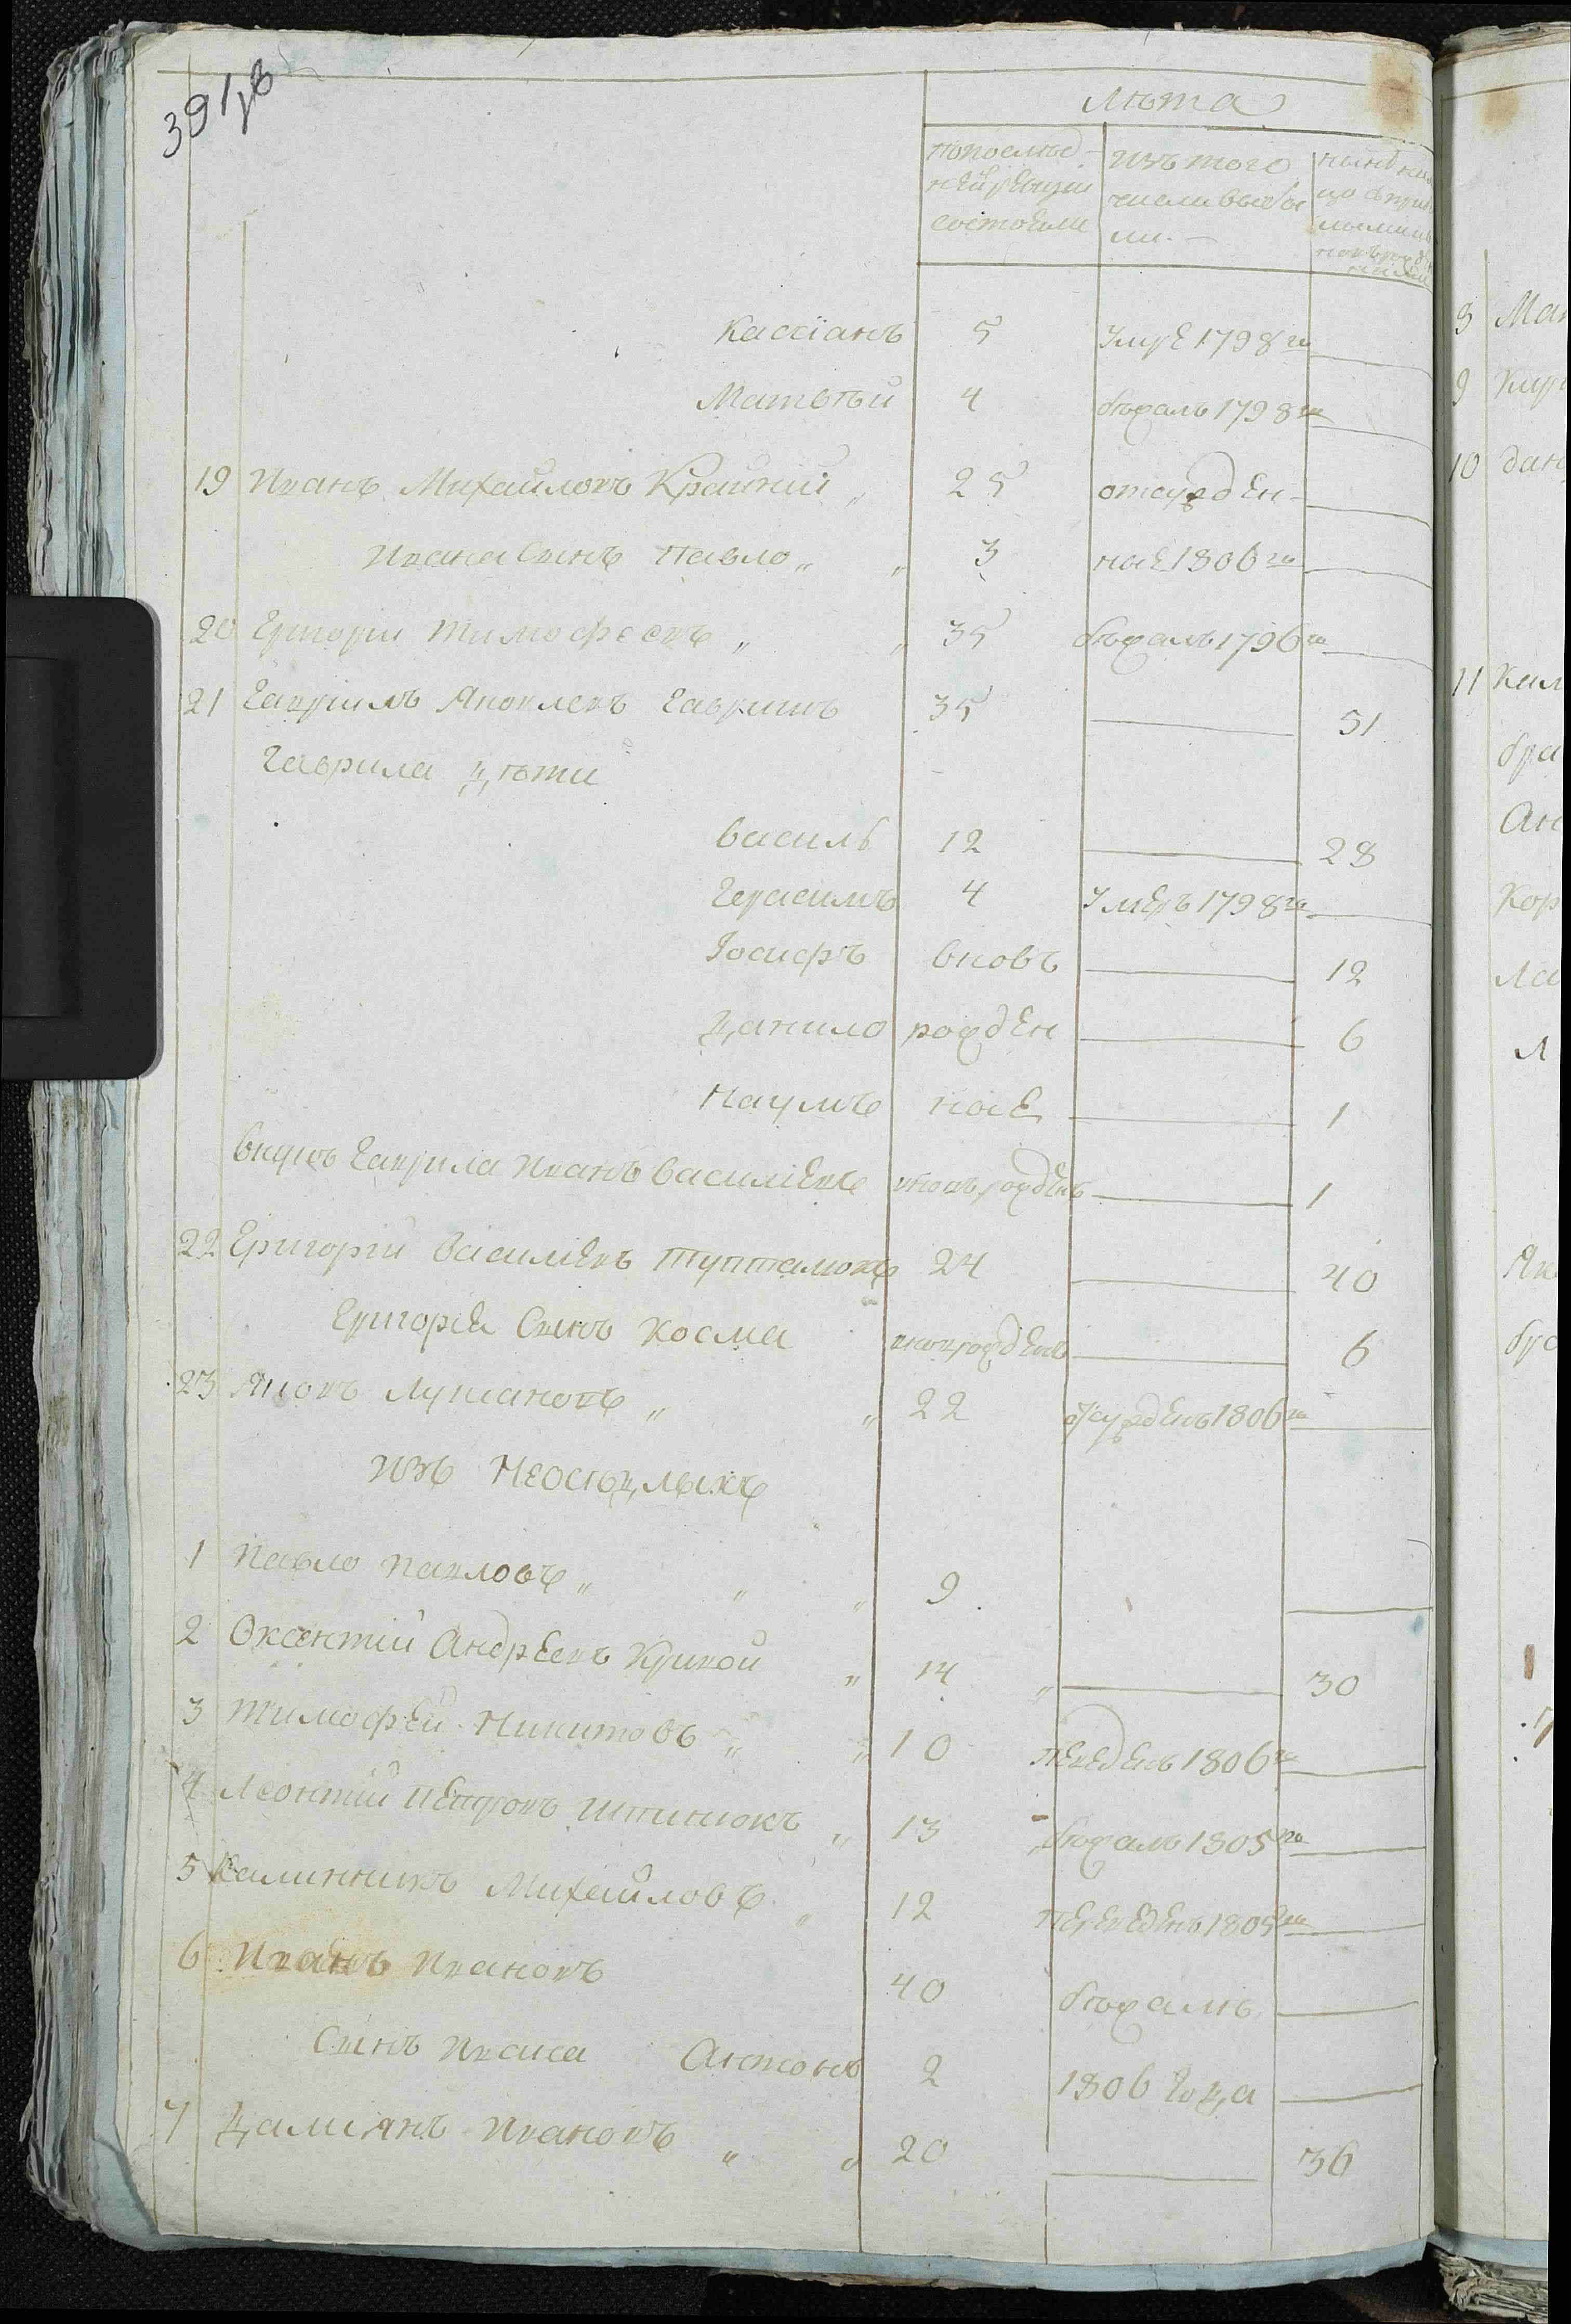 39
лѣта
по послѣд-
ней ревизіи
состояли
изъ того
числа выбы
ли.
нынѣ на
лицо
Кассіанъ 5 Умре 1798 го
Матвѣй 4 бѣжалъ 1798 го
19 Иванъ Михайловъ Крайній „ 25 отсужден-
Ивана Сынъ Павло „ „ 3 ные 1806 го
20 Григори Тимофеевъ „ „ 35 бѣжалъ 1796 го
21 Гавриилъ Яковлевъ Гавришъ 35 51
Гаврила дѣти
Василь 12 28
Герасимъ 4 Умеръ 1798 го
Іосифъ вновь 12
Данило рожден 6
Наумъ ные 1
внукъ Гаврила Иванъ Василіевъ вновь рожденъ 1
22 Григорій Василіевъ Тупталовъ 24 40
Григорія Сынъ Косма внов рожденъ 6
23 Яковъ Лукановъ „ „ 22 отсужденъ 1806 го
Изъ Неосѣдлыхъ
1 Павло Павловъ „ „ „ 9
2 Оксентій Андреевъ Кривой „ 14 „ 30
3 Тимофей Никитовъ „ „ 10 переведенъ 1806 го
4 Леонтій Петровъ „ 13 бѣжалъ 1805 го
5 Калинникъ Михайловъ „ 12 переведенъ 1805 го
6 Иванъ Ивановъ 40 бѣжалъ
Сынъ Ивана Антонъ 2 1806 года
7 Даміянъ Ивановъ „ „ 20 36
8 Ма
9 Кир
10 Дан
11 Кал
бра
Ан
Кор
Ла
Л
Як
бра